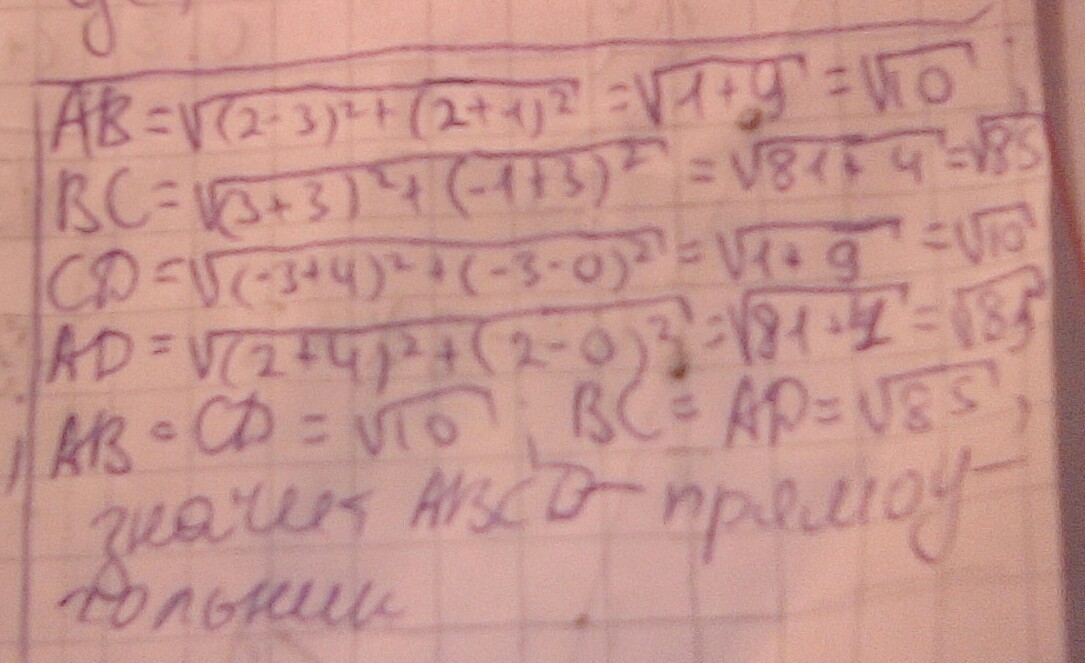 AB = √(2-3)²+(2+1)² = √1+9 = √10 ;
BC = √(3+3)²+(-1+3)² = √81+4 = √85
CD = √(-3+4)²+(-3-0)² = √1+9 = √10
AD = √(2+4)²+(2-0)² = √81+4 = √85
AB = CD = √10 ; BC = AD = √85 ,
значит ABCD - прямоу-
гольник